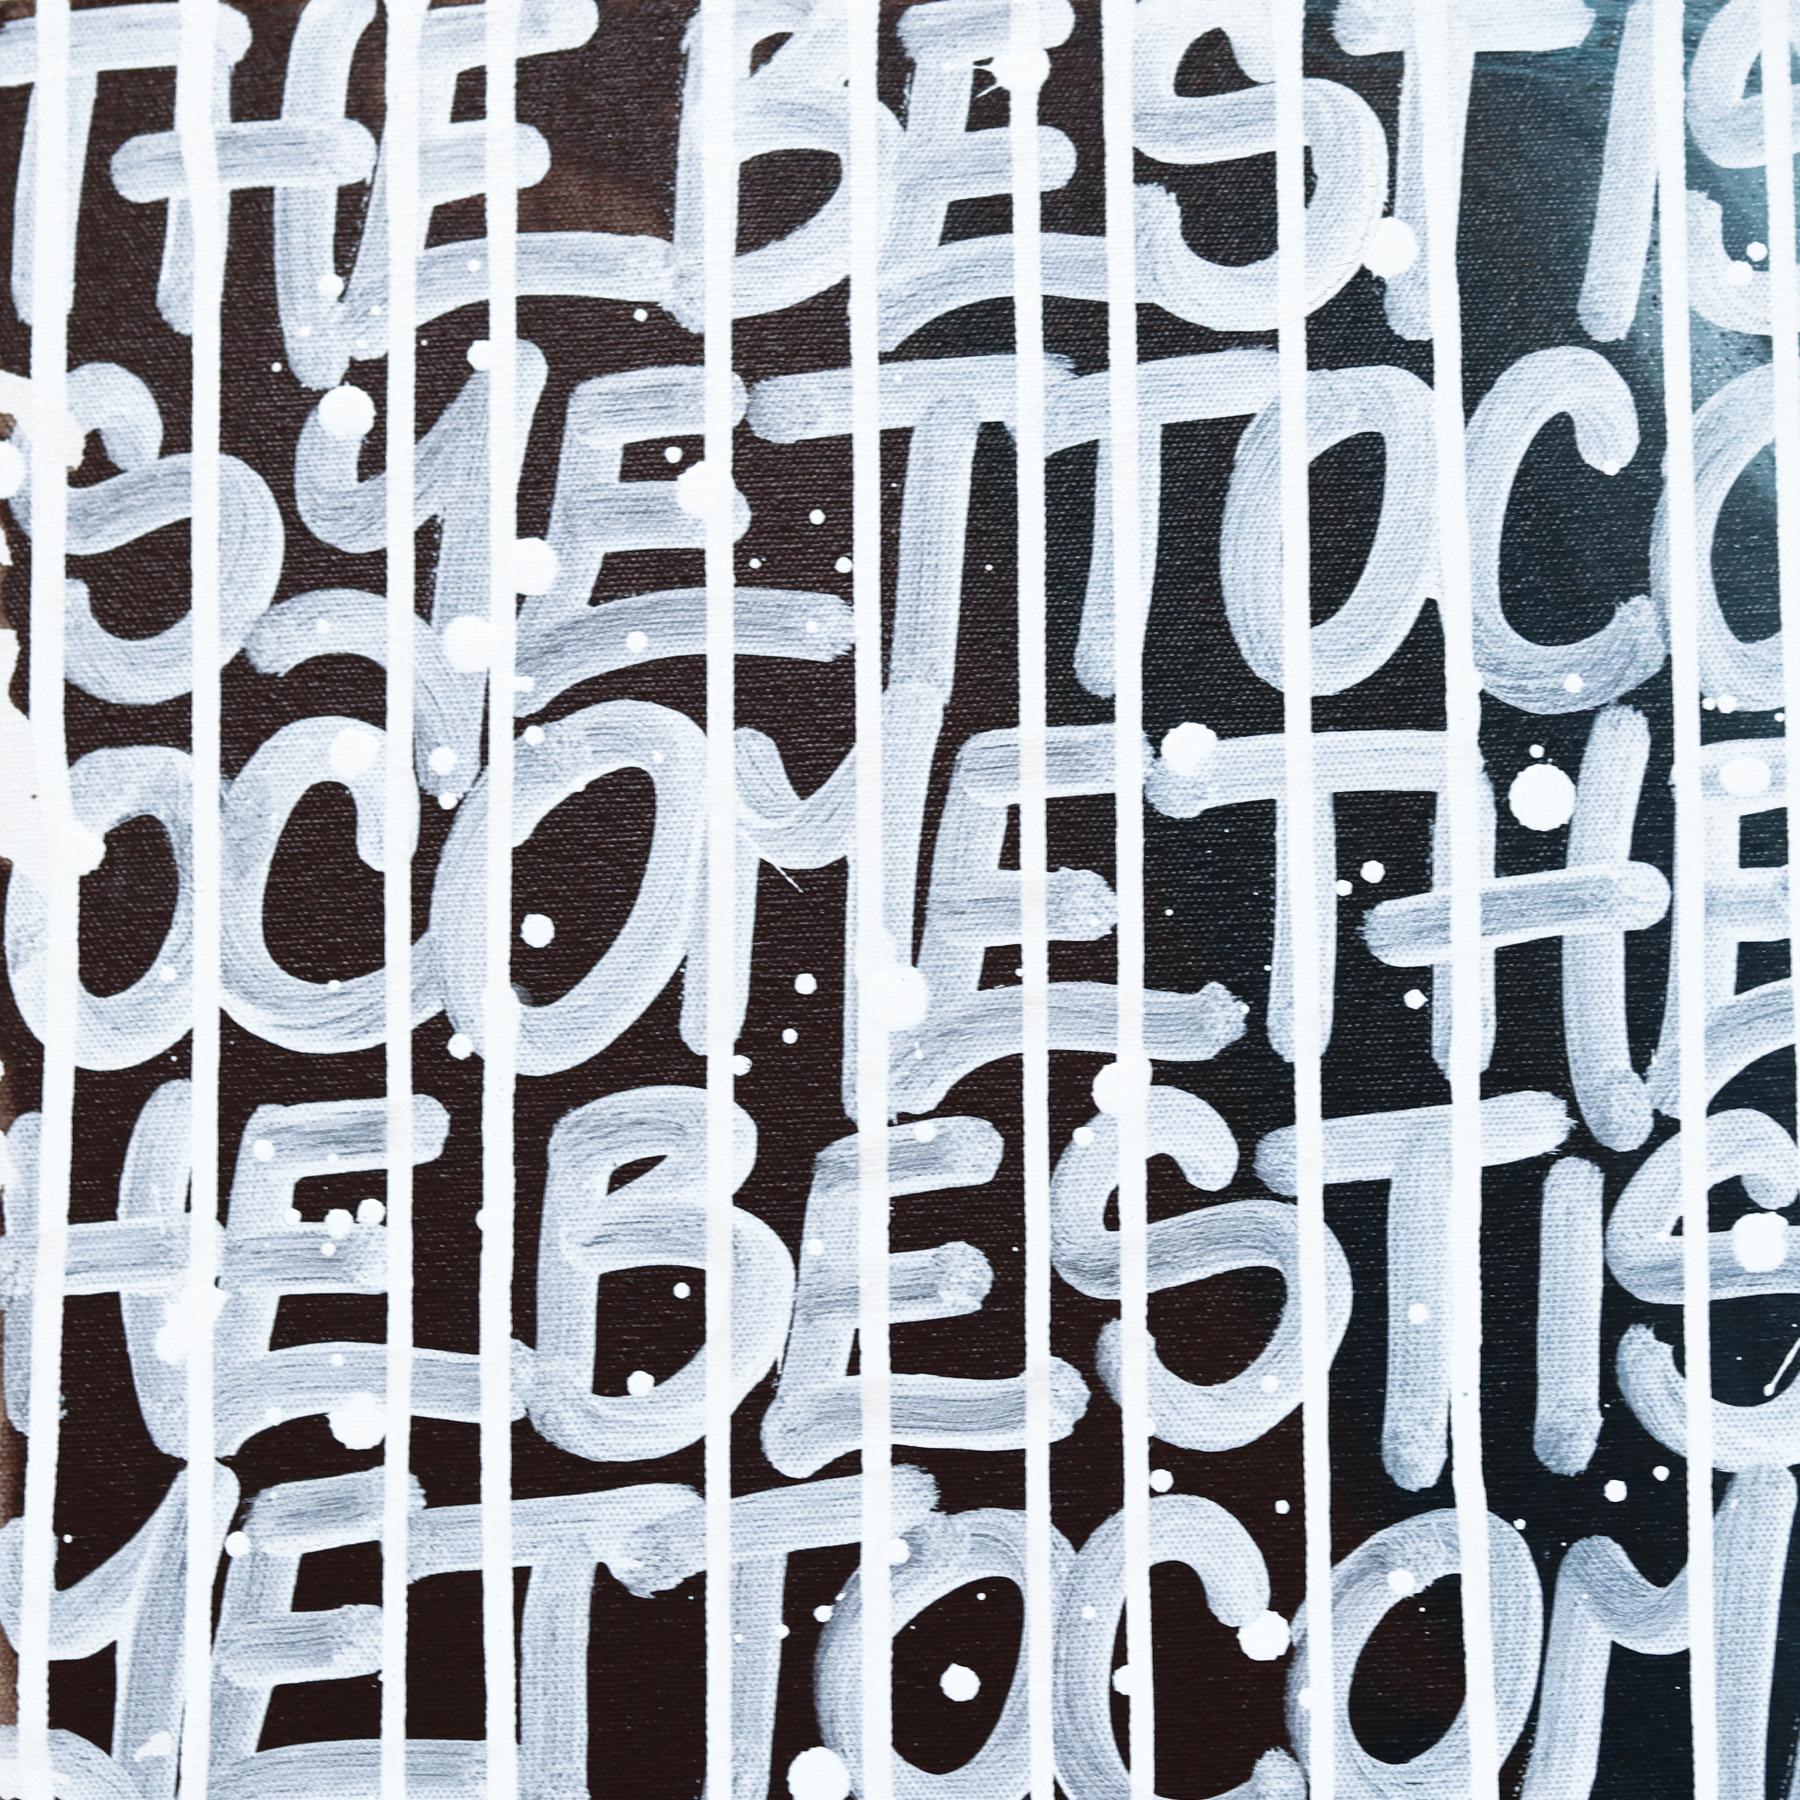 THE BEST IS
S YET TO CO
O COME THE
HE BEST IS
YET TO COM